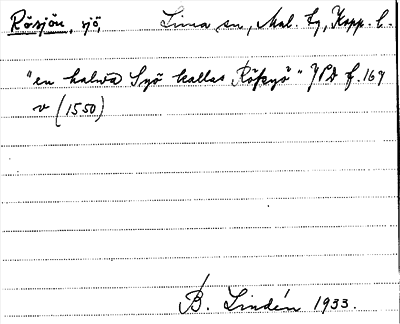 Rösjön, sjö, Lima sn, Mal. tg, Kopp. l.
"en halwa Syö kallas Rössyö" JPD f. 169
v (1550)
B. Lindén 1933.